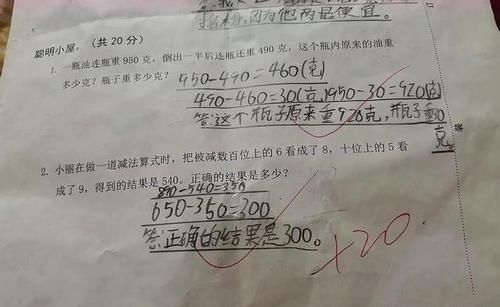 因为他两居便宜。
聪明小屋。（共 20 分）
1. 一瓶油连瓶重 950 克，倒出一半后连瓶还重 490 克，这个瓶内原来的油重
多少克？瓶子重多少克？ 950-490=460(克)
490-460=30(克)950-30=920(克)
答:这个瓶子原来重920克,瓶子重30
克。
2. 小丽在做一道减法算式时，把被减数百位上的 6 看成了 8，十位上的 5 看
成了 9，得到的结果是 540。正确的结果是多少？
890-540=350
650-350=300
答:正确的结果是300。
+20